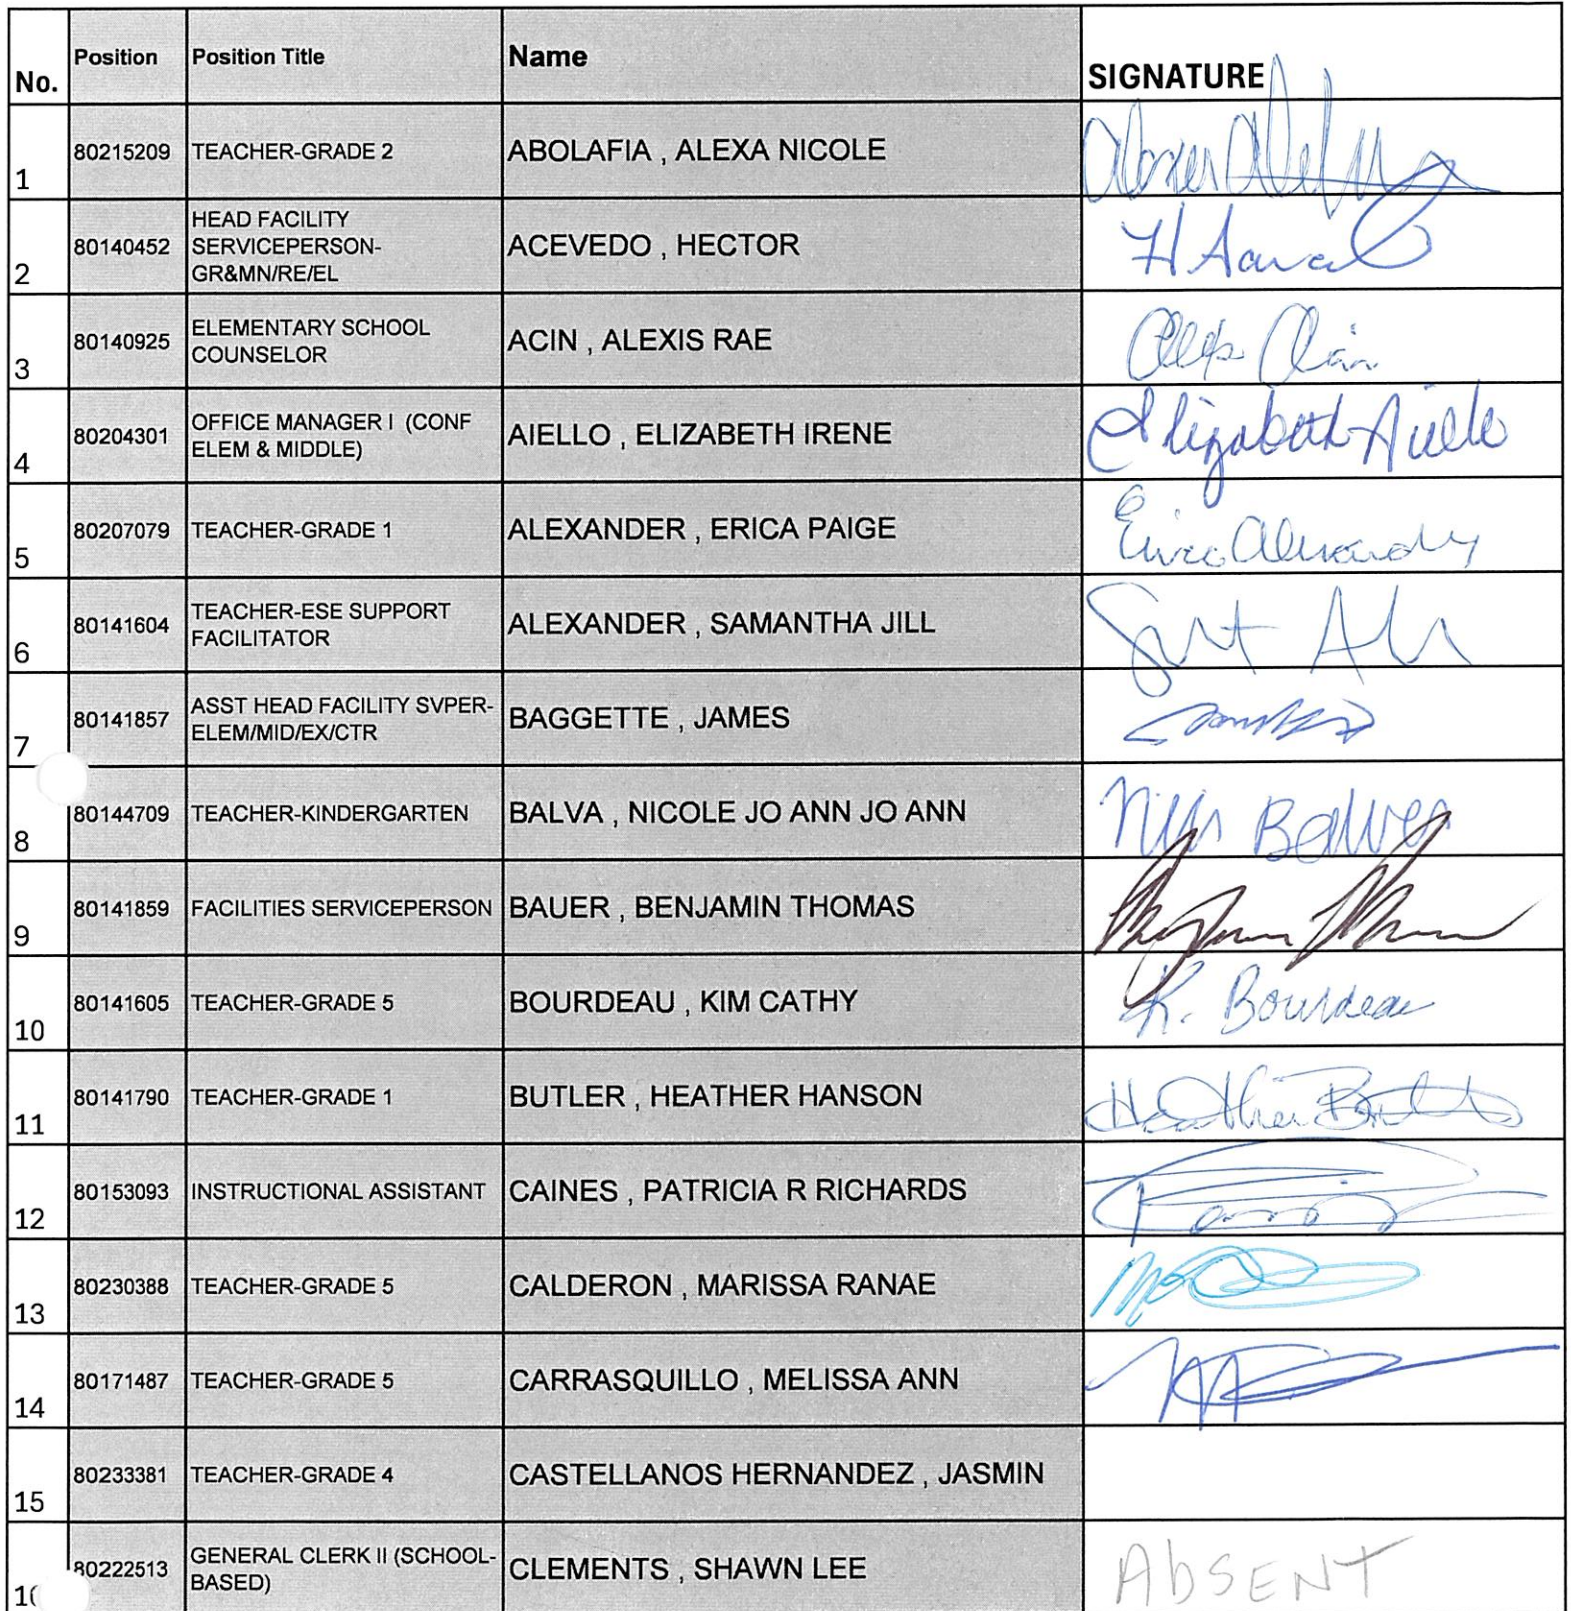 No. Position Position Title Name SIGNATURE
1 80215209 TEACHER-GRADE 2 ABOLAFIA , ALEXA NICOLE
2 80140452 HEAD FACILITY SERVICEPERSON-GR&MN/RE/EL ACEVEDO , HECTOR
3 80140925 ELEMENTARY SCHOOL COUNSELOR ACIN , ALEXIS RAE
4 80204301 OFFICE MANAGER I (CONF ELEM & MIDDLE) AIELLO , ELIZABETH IRENE Elizabeth Aiello
5 80207079 TEACHER-GRADE 1 ALEXANDER , ERICA PAIGE Erica Alexander
6 80141604 TEACHER-ESE SUPPORT FACILITATOR ALEXANDER , SAMANTHA JILL
7 80141857 ASST HEAD FACILITY SVPER-ELEM/MID/EX/CTR BAGGETTE , JAMES
8 80144709 TEACHER-KINDERGARTEN BALVA , NICOLE JO ANN JO ANN
9 80141859 FACILITIES SERVICEPERSON BAUER , BENJAMIN THOMAS
10 80141605 TEACHER-GRADE 5 BOURDEAU , KIM CATHY K. Bourdeau
11 80141790 TEACHER-GRADE 1 BUTLER , HEATHER HANSON
12 80153093 INSTRUCTIONAL ASSISTANT CAINES , PATRICIA R RICHARDS
13 80230388 TEACHER-GRADE 5 CALDERON , MARISSA RANAE
14 80171487 TEACHER-GRADE 5 CARRASQUILLO , MELISSA ANN
15 80233381 TEACHER-GRADE 4 CASTELLANOS HERNANDEZ , JASMIN
80222513 GENERAL CLERK II (SCHOOL-BASED) CLEMENTS , SHAWN LEE AbSENT